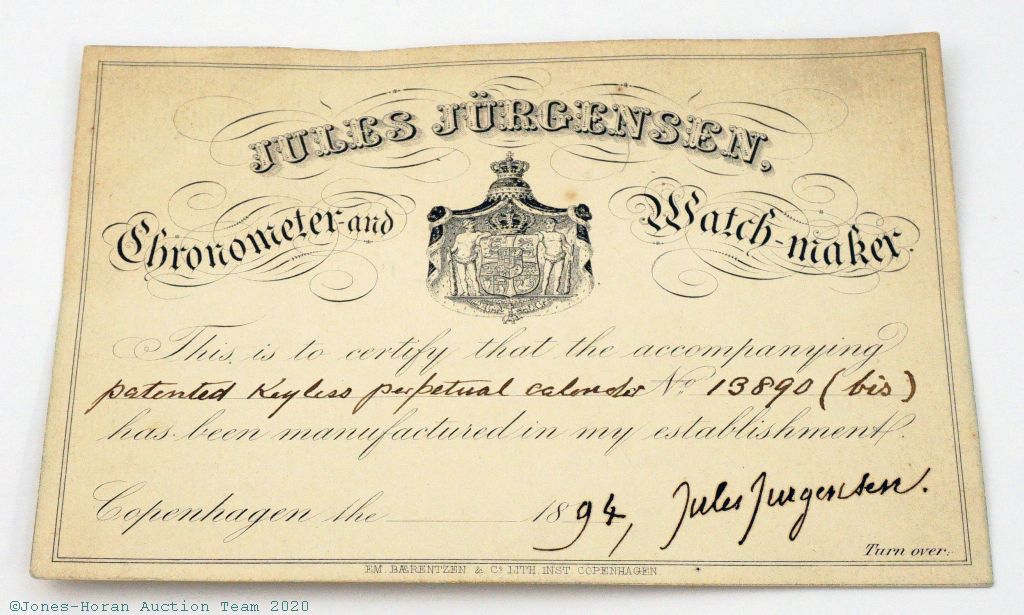 JULES JÜRGENSEN,
Chronometer-and Watch-maker.
This is to certify that the accompanying
patented Keyless perpetual calendar No 13890 (bis)
has been manufactured in my establishment.
Copenhagen the 1894, Jules Jurgensen.
Turn over.
EM. BÆRENTZEN & Co. LITH. INST. COPENHAGEN
©Jones-Horan Auction Team 2020